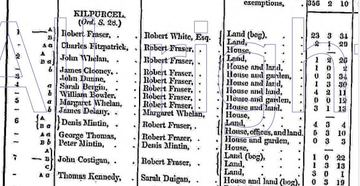 exemptions, 356 2 10
KILPURCEL.
(Ord. S. 28.)
Robert Fraser, Robert White, Esq. Land (bog), 23 3 34
Charles Fitzpatrick, Robert Fraser, Land, 2 1 29
House,
John Whelan, Robert Fraser, Land, 1 2 26
James Clooney, Robert Fraser, House and land, 1 0 2
John Dunne, Robert Fraser, House and garden, 0 3 34
Sarah Bergin, Robert Fraser, House and land, 1 3 30
William Bowler, Robert Fraser, House and land, 4 3 11
Margaret Whelan, Robert Fraser, House and garden, 0 0 12
James Delany, Margaret Whelan, House and land, 3 1 13
House,
Denis Mintin, Robert Fraser, Land, 4 3 4
George Thomas, Robert Fraser, House, offices, and land, 5 3 10
Peter Mintin, Denis Mintin, House and garden, 0 0 3
House,
John Costigan, Robert Fraser, Land (bog), 1 0 22
Land, 3 0 13
Thomas Kennedy, Sarah Duigan, House and land, 30 0 1
House and land (bog), 0 3 19